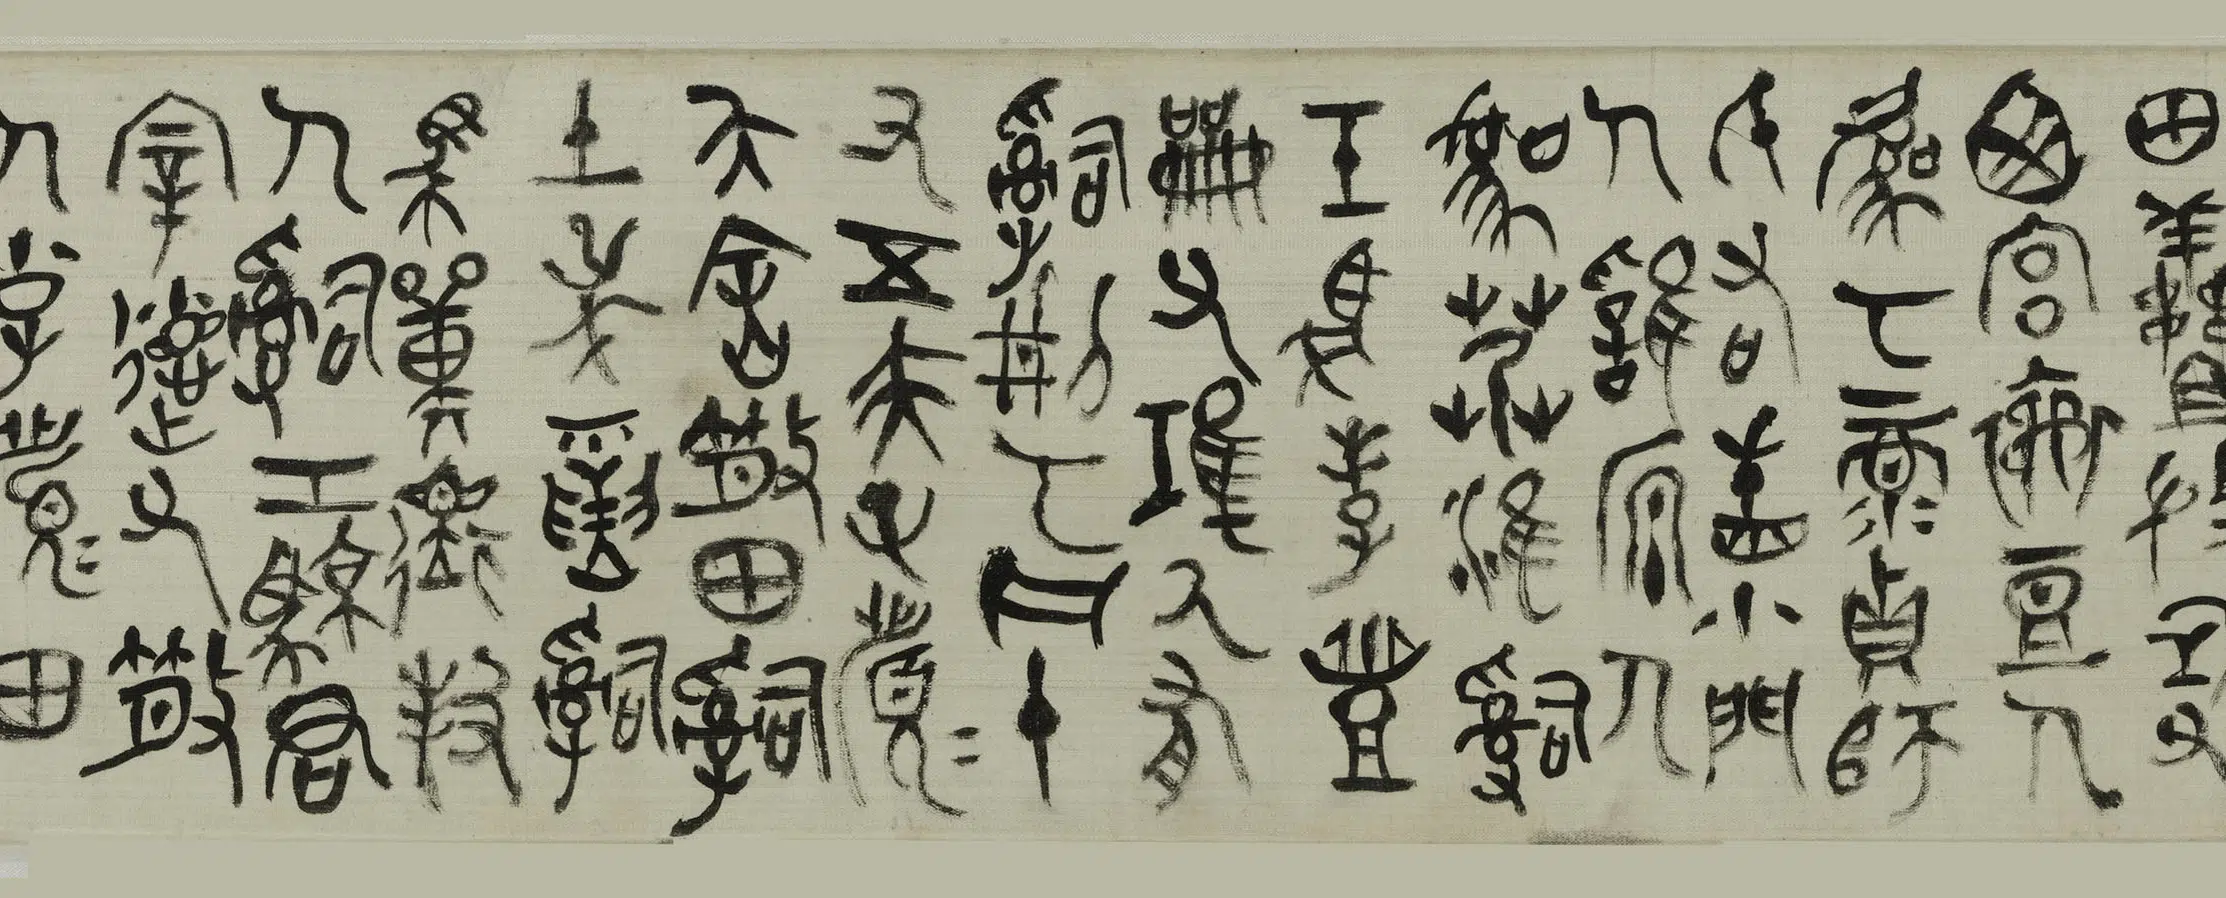 田鮮且微武父
西宮襄豆人
虞丂彔貞師
氏右眚小門
人繇原人
虞艿淮司
工虎孝豐
父人有
司刑丂凡十
又五夫正眉
夨舍散田司
土屰寅司
馬單邦
人司工駷君
宰德父散
人小子眉田